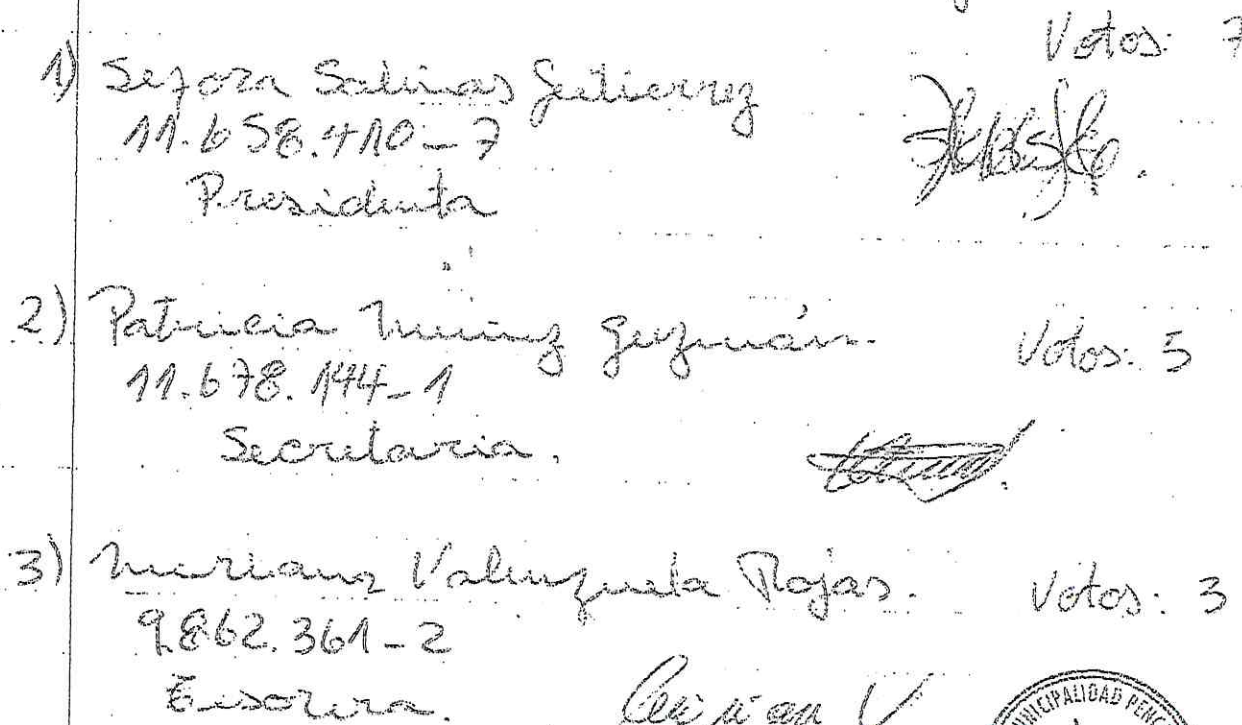 Votos: 7
1) Sefora Salinas Gutierrez
11.658.410-7
Presidenta
2) Patricia Muñoz Guzmán. Votos: 5
11.678.144-1
Secretaria.
3) Valenzuela Rojas. Votos: 3
9.862.361-2
Tesorera.
MUNICIPALIDAD